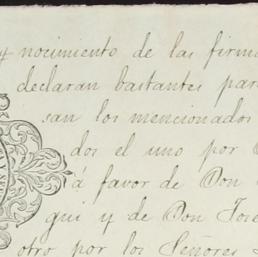 y nocimiento de las firma
declaran bastantes par
san los mencionados
dos el uno por
á favor de Don
gui y de Don José
otro por los Señores